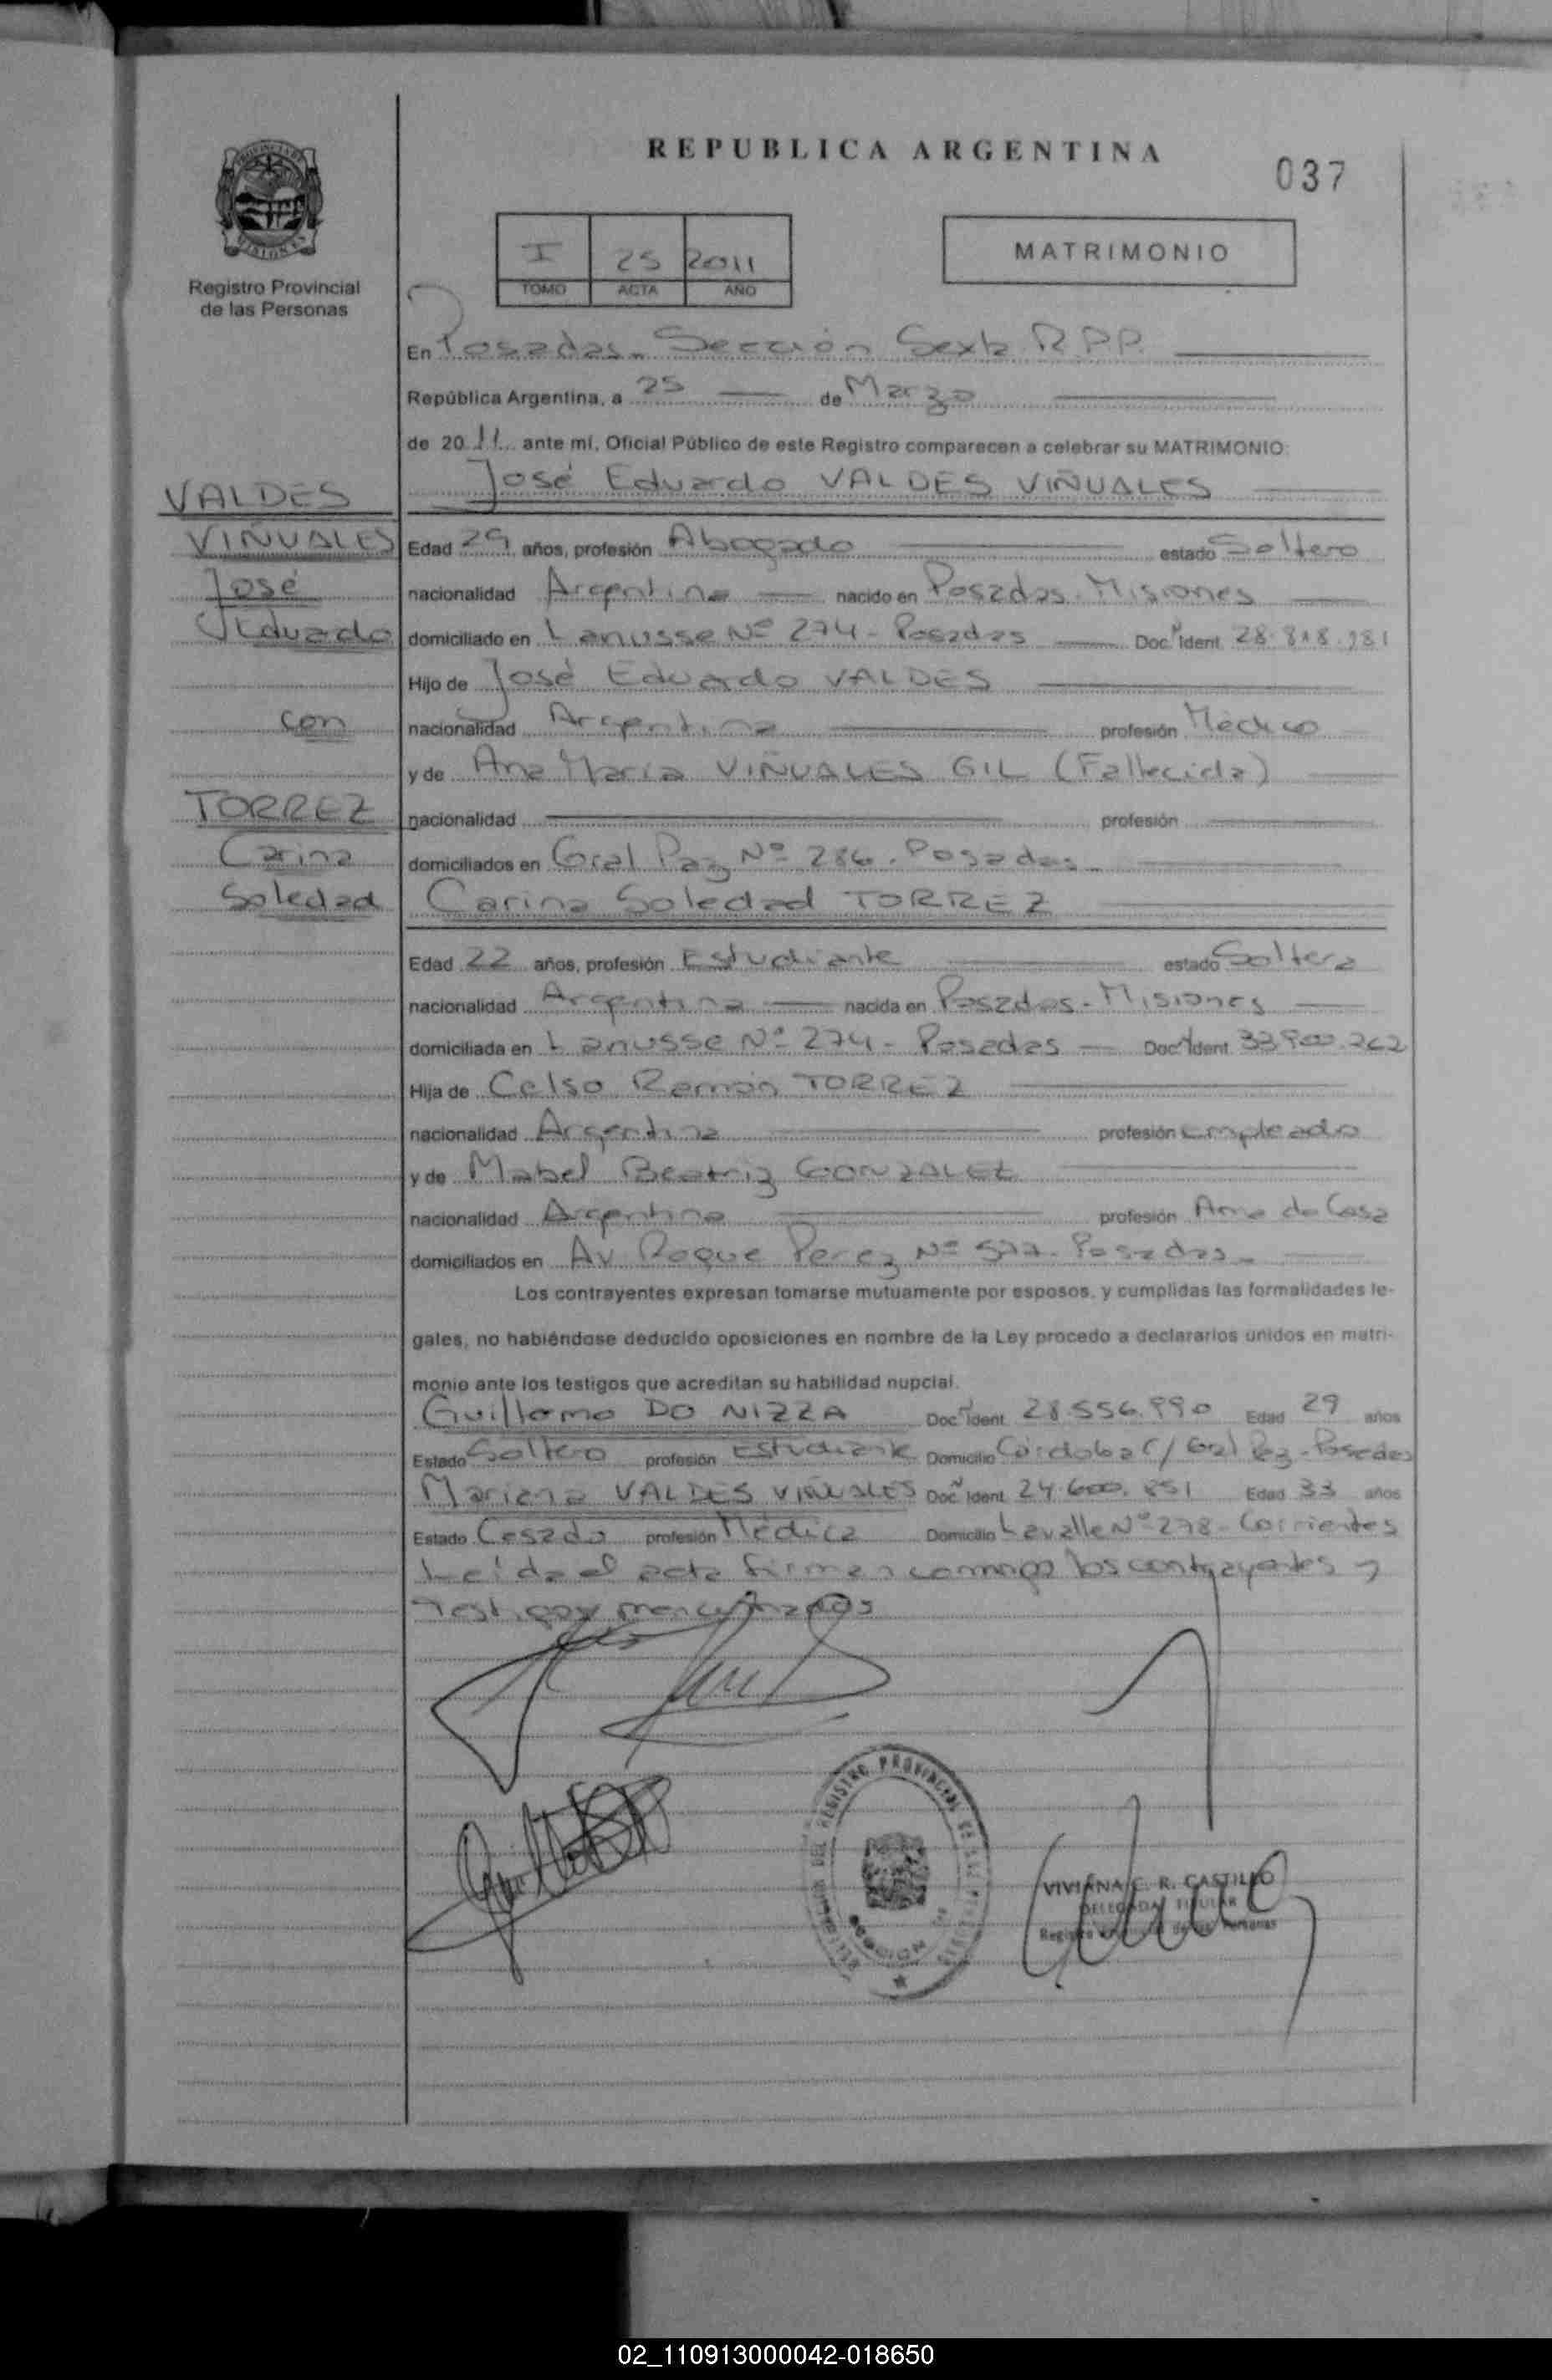 REPUBLICA ARGENTINA
037
Registro Provincial
de las Personas
I 25 2011
TOMO ACTA AÑO
MATRIMONIO
En Posadas - Sección Sexta R.P.P.
República Argentina, a 25 de Marzo
de 2011 ante mí, Oficial Público de este Registro comparecen a celebrar su MATRIMONIO:
José Eduardo VALDES VIÑUALES
VALDES
VIÑUALES
José
Eduardo
con
TORREZ
Carina
Soledad
Edad 29 años, profesión Abogado estado Soltero
nacionalidad Argentina nacido en Posadas - Misiones
domiciliado en Lanusse Nº 274 - Posadas Doc. Ident. 28.818.981
Hijo de José Eduardo VALDES
nacionalidad Argentina profesión Médico
y de Ana María VIÑUALES GIL (Fallecida)
nacionalidad profesión
domiciliados en Gral Paz Nº 286. Posadas
Carina Soledad TORREZ
Edad 22 años, profesión Estudiante estado Soltera
nacionalidad Argentina nacida en Posadas - Misiones
domiciliada en Lanusse Nº 274 - Posadas Doc. Ident. 33.900.262
Hija de Celso Ramón TORREZ
nacionalidad Argentina profesión Empleado
y de Mabel Beatriz GONZALEZ
nacionalidad Argentina profesión Ama de Casa
domiciliados en Av Roque Perez Nº 577 - Posadas
Los contrayentes expresan tomarse mutuamente por esposos, y cumplidas las formalidades le-
gales, no habiéndose deducido oposiciones en nombre de la Ley procedo a declararlos unidos en matri-
monio ante los testigos que acreditan su habilidad nupcial.
Guillermo DO NIZZA Doc. Ident. 28.556.990 Edad 29 años
Estado Soltero profesión Estudiante Domicilio Córdoba c/ Gral Paz - Posadas
Mariana VALDES VIÑUALES Doc. Ident. 24.600.851 Edad 33 años
Estado Casada profesión Médica Domicilio Lavalle Nº 278 - Corrientes
Leída el acta firman conmigo los contrayentes y
Testigos mencionados
VIVIANA C. R. CASTILLO
DELEGADA TITULAR
02_110913000042-018650